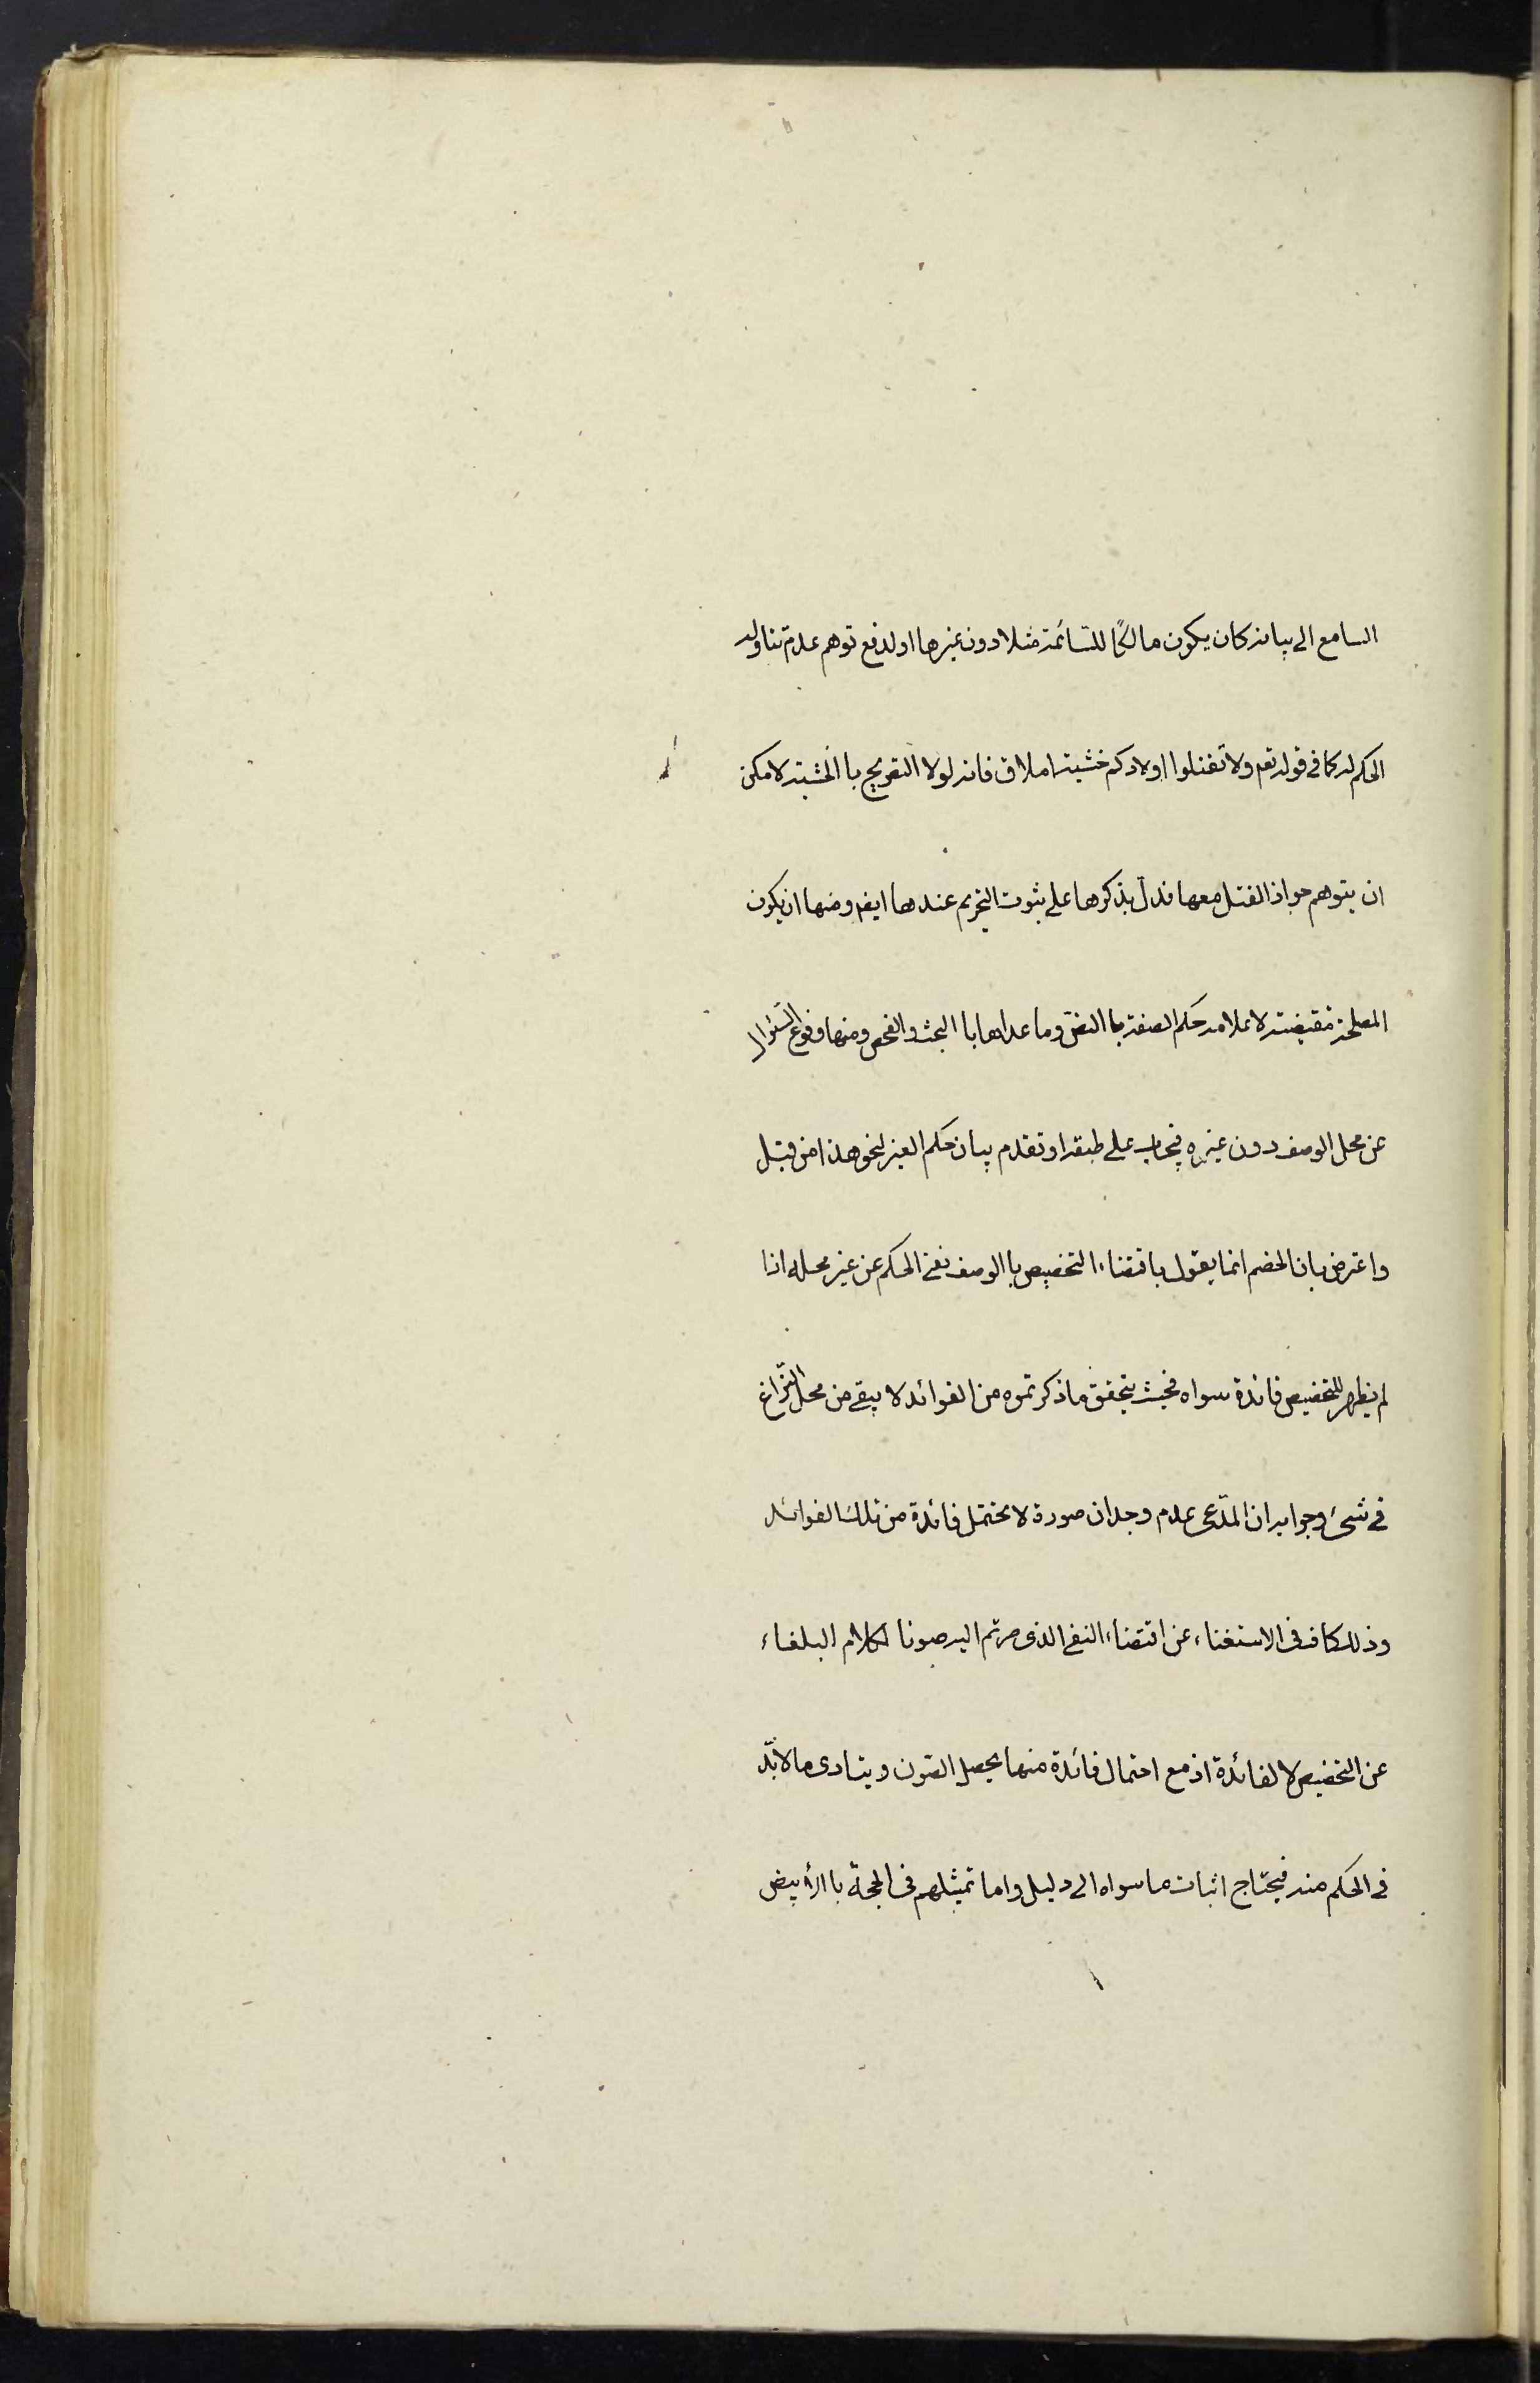 السامع الى بيانه كان يكون مالكا للسّائمة مثلا دون غيرها او لدفع توهم عدم تناول
الحكم له كما في قوله تعم ولا تقتلوا اولادكم خشية املاق فانه لولا التصريح با الخشية لامكن
ان يتوهم جواز القتل معها فدلّ بذكرها على ثبوت التحريم عندها ايضا ومنها ان يكون
المصلحة مقتضية لاعلامه حكم الصفة با النصّ وما عداها با البحث والفحص ومنها وقوع السّؤال
عن محل الوصف دون غيره فيجاب على طبقه او تقدم بيان حكم الغير لنحو هذا من قبل
واعترض بان الخصم انما يقول باقتضاء التخصيص با الوصف نفى الحكم عن غير محله اذا
لم يظهر للتخصيص فائدة سواه فحيث يتحقق ما ذكرتموه من الفوائد لا يبقى من محل النّزاع
فى شئ وجوابه ان المدّعى عدم وجدان صورة لا يحتمل فائدة من تلك الفوائد
وذلك كاف فى الاستغناء عن اقتضاء النفى الذى صرتم اليه صونا لكلام البلغاء
عن التخصيص لا لفائدة اذ مع احتمال فائدة منها يحصل الصون ويتادى ما لا بدّ
فى الحكم منه فيحتاج اثبات ما سواه الى دليل واما تمثيلهم فى الحجة با الأبيض